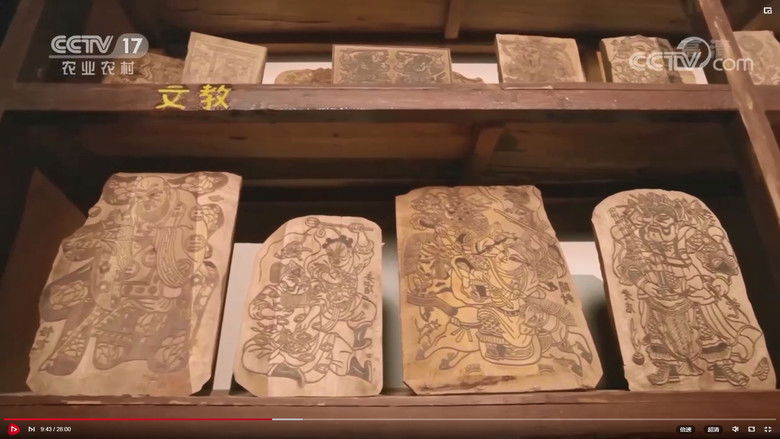 CCTV 17
农业农村
高清
CCTV.com
文教
9:43 / 26:00
倍速
超清